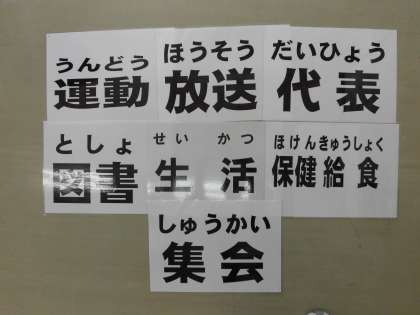 うんどう
運動
ほうそう
放送
だいひょう
代表
としょ
図書
せいかつ
生活
ほけんきゅうしょく
保健給食
しゅうかい
集会